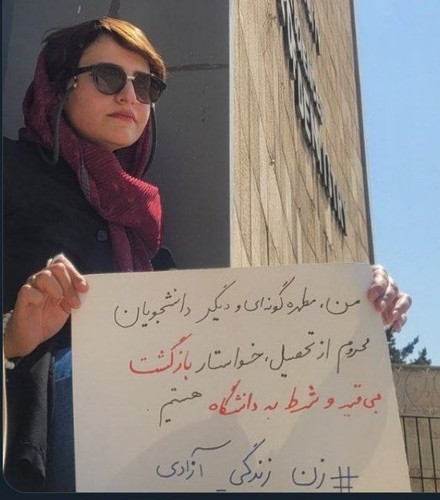 من، مطهره گونه‌ای و دیگر دانشجویان
محروم از تحصیل، خواستار بازگشت
بی قید و شرط به دانشگاه هستیم.
#زن زندگی آزادی